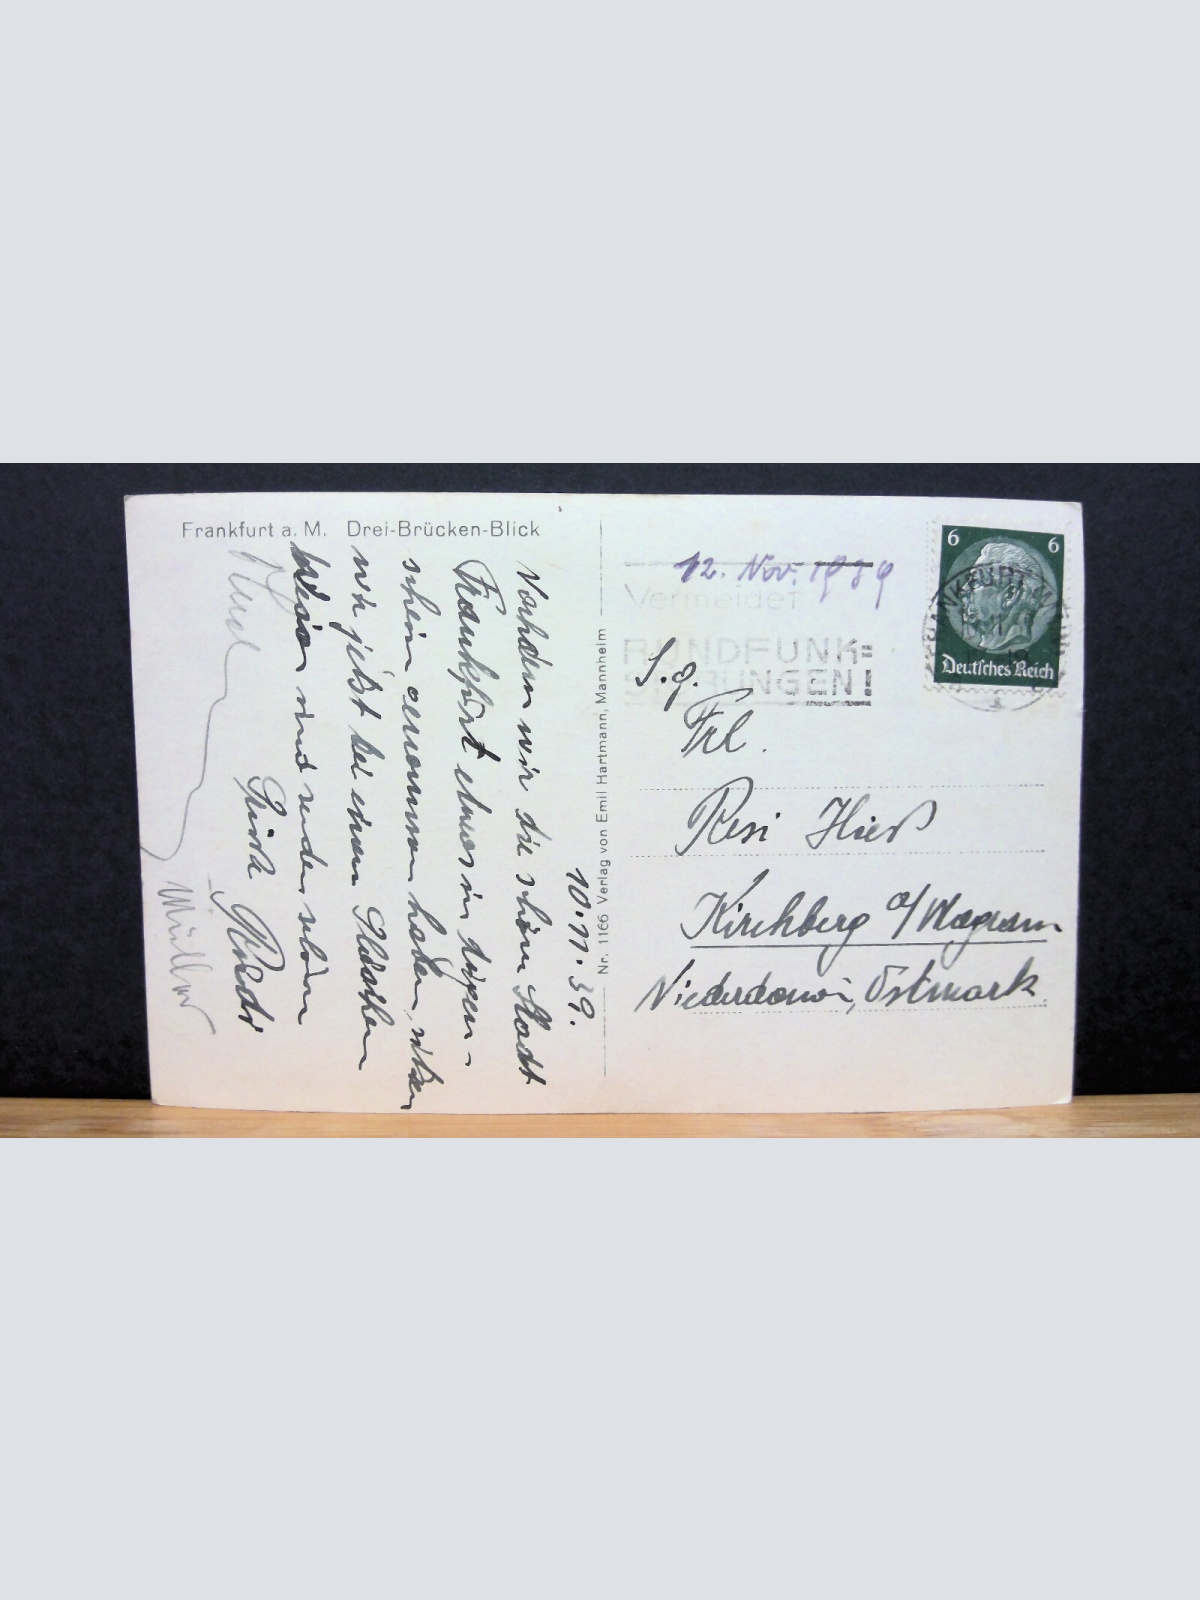 Frankfurt a. M. Drei-Brücken-Blick
10.11.39.
Nachdem wir die schöne Stadt
Frankfurt etwas in Augen-
schein genommen haben, sitzen
wir jetzt bei einem Gläschen
Wein und senden schöne
Grüße
Müller
Nr. 1166 Verlag von Emil Hartmann, Mannheim
12. Nov. 1939
Vermeidet
RUNDFUNK=
STÖRUNGEN!
6 6
Deutsches Reich
FRANKFURT
S.g.
Frl.
Resi Hieß
Kirchberg a/Wagram
Niederdonau, Ostmark